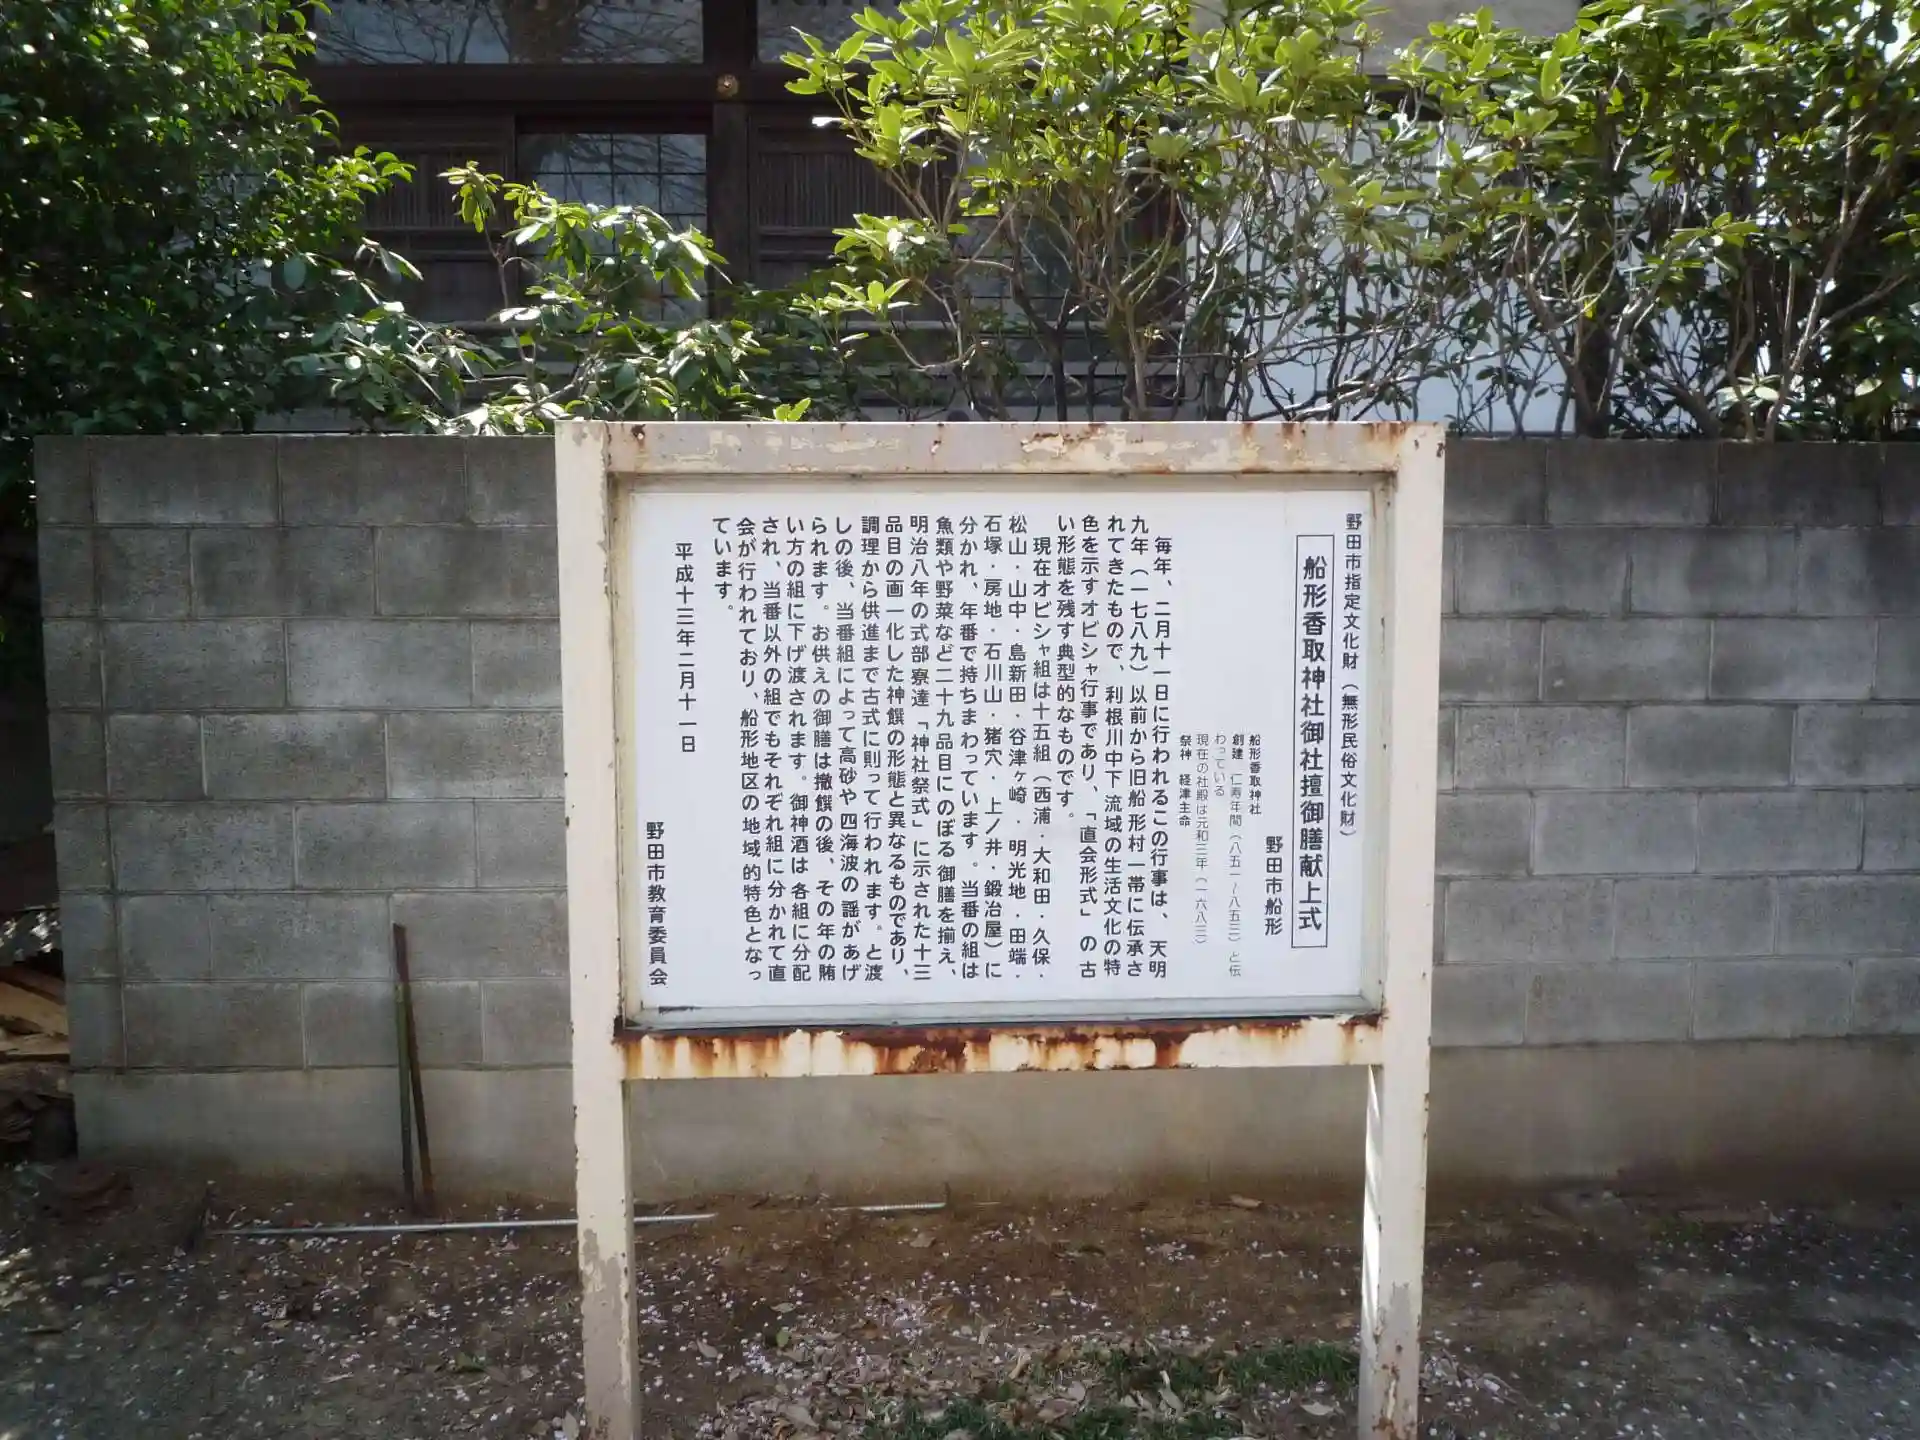 野田市指定文化財（無形民俗文化財）
船形香取神社御社擅御膳献上式
野田市船形
船形香取神社
創建　仁寿年間（八五一～八五三）と伝
わっている
現在の社殿は元和三年（一六八三）
祭神　経津主命
毎年、二月十一日に行われるこの行事は、天明
九年（一七八九）以前から旧船形村一帯に伝承さ
れてきたもので、利根川中下流域の生活文化の特
色を示すオビシャ行事であり、「直会形式」の古
い形態を残す典型的なものです。
現在オビシャ組は十五組（西浦・大和田・久保・
松山・山中・島新田・谷津ヶ崎・明光地・田端・
石塚・房地・石川山・猪穴・上ノ井・鍛冶屋）に
分かれ、年番で持ちまわっています。当番の組は
魚類や野菜など二十九品目にのぼる御膳を揃え、
明治八年の式部寮達「神社祭式」に示された十三
品目の画一化した神饌の形態と異なるものであり、
調理から供進まで古式に則って行われます。と渡
しの後、当番組によって高砂や四海波の謡があげ
られます。お供えの御膳は撤饌の後、その年の賄
い方の組に下げ渡されます。御神酒は各組に分配
され、当番以外の組でもそれぞれ組に分かれて直
会が行われており、船形地区の地域的特色となっ
ています。
平成十三年二月十一日
野田市教育委員会